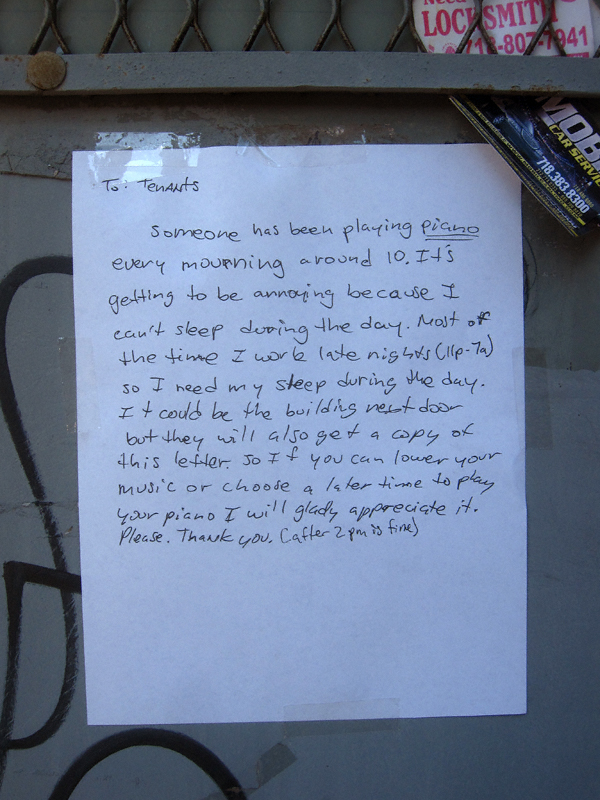 Need
LOCKSMITH
718-807-7941
MOBI
CAR SERVIC
718.383.8300
To: Tenants
Someone has been playing piano
every mourning around 10. It's
getting to be annoying because I
can't sleep during the day. Most of
the time I work late nights (11p-7a)
so I need my sleep during the day.
It could be the building next door
but they will also get a copy of
this letter. So If you can lower your
music or choose a later time to play
your piano I will glady appreciate it.
Please. Thank you. (after 2pm is fine)